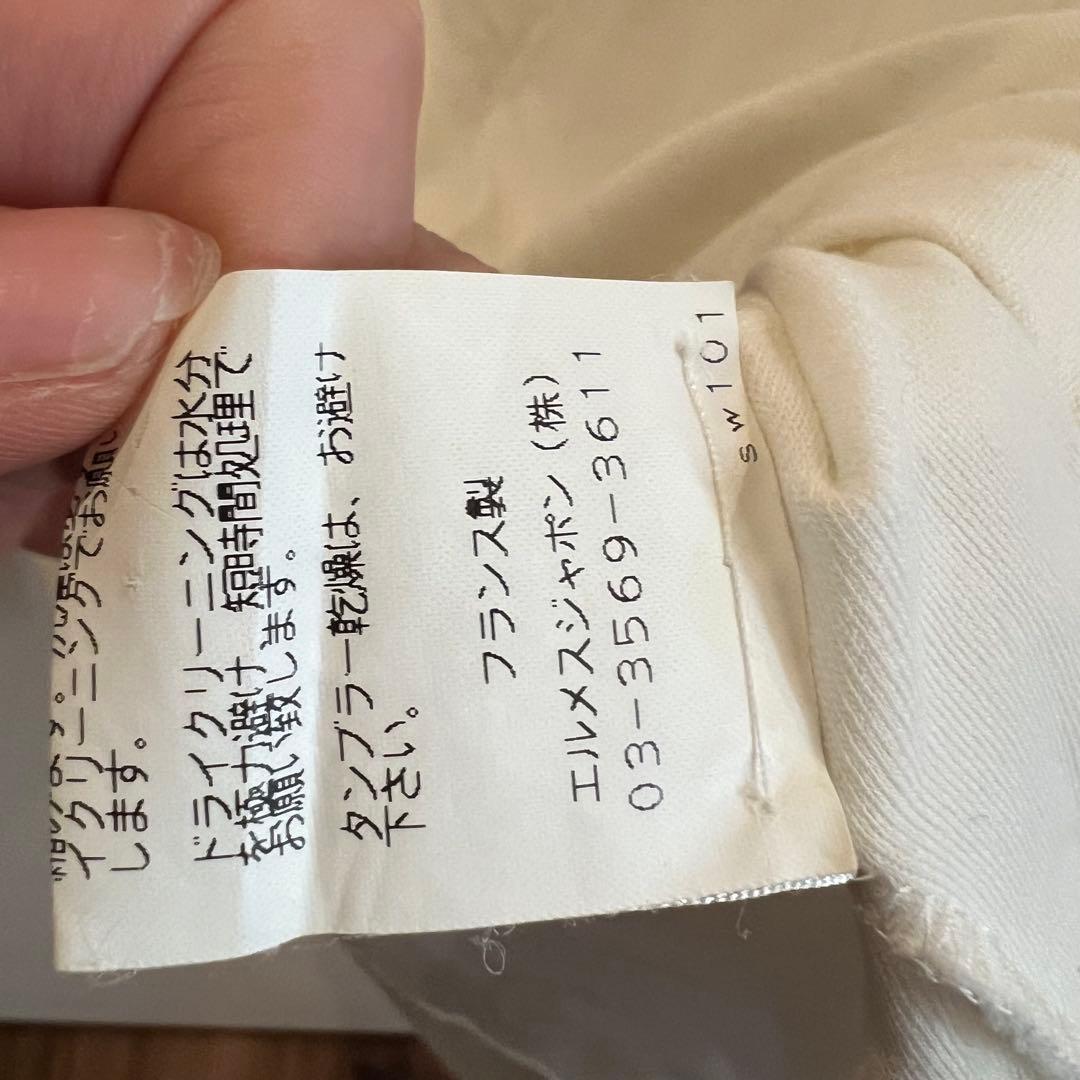 イクリーニングでお願い
します。
ドライクリーニングは水分
を極力避け 短時間処理で
お願い致します。
タンブラー乾燥は、お避け
下さい。
フランス製
エルメスジャポン(株)
03-3569-3611
sw101